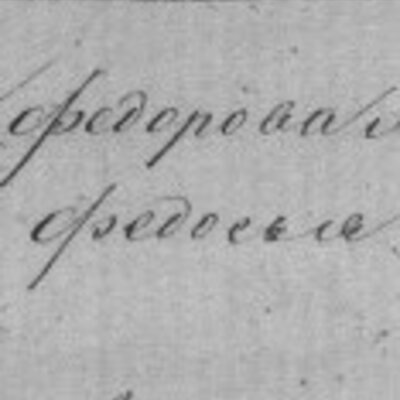 Федорова
Федосья